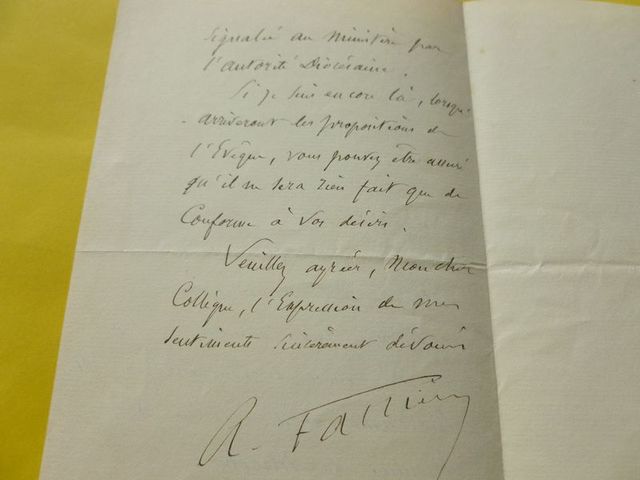 Signalé au Ministère par
l'autorité Diocésaine.
Si je suis encore là, lorsque
arriveront les propositions de
l'Evêque, vous pouvez être assuré
qu'il ne sera rien fait que de
Conforme à vos désirs.
Veuillez agréer, Mon cher
Collègue, l'Expression de mes
sentiments sincèrement dévoués
A. Fallières